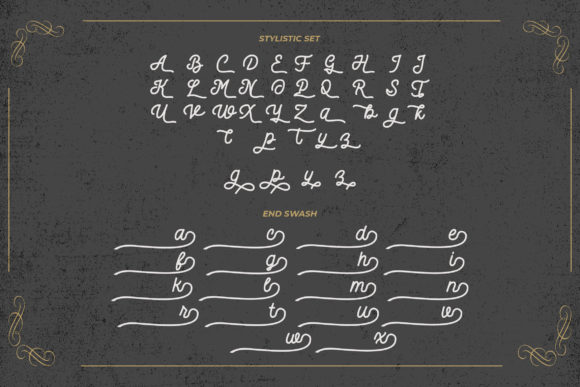 STYLISTIC SET
A B C D E F G H I J
K L M N O P Q R S T
U V W X Y Z a b g k
t p T y z
g p y z
END SWASH
a c d e
f g h i
k l m n
r t u v
w x